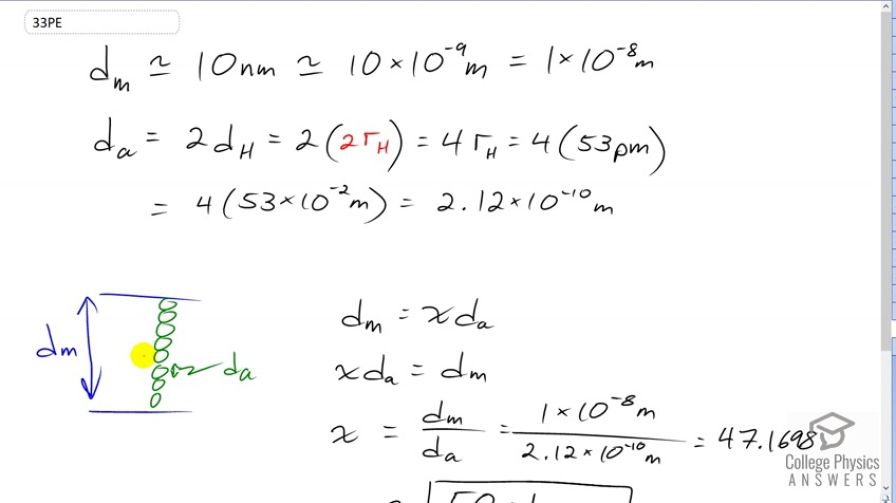 33PE
dₘ ≃ 10nm ≃ 10×10⁻⁹m = 1×10⁻⁸m
dₐ = 2d_H = 2(2r_H) = 4r_H = 4(53pm)
= 4(53×10⁻²m) = 2.12×10⁻¹⁰m
dₘ
dₐ
dₘ = xdₐ
xdₐ = dₘ
x = dₘ/dₐ = 1×10⁻⁸m/2.12×10⁻¹⁰m = 47.1698
College Physics
ANSWERS